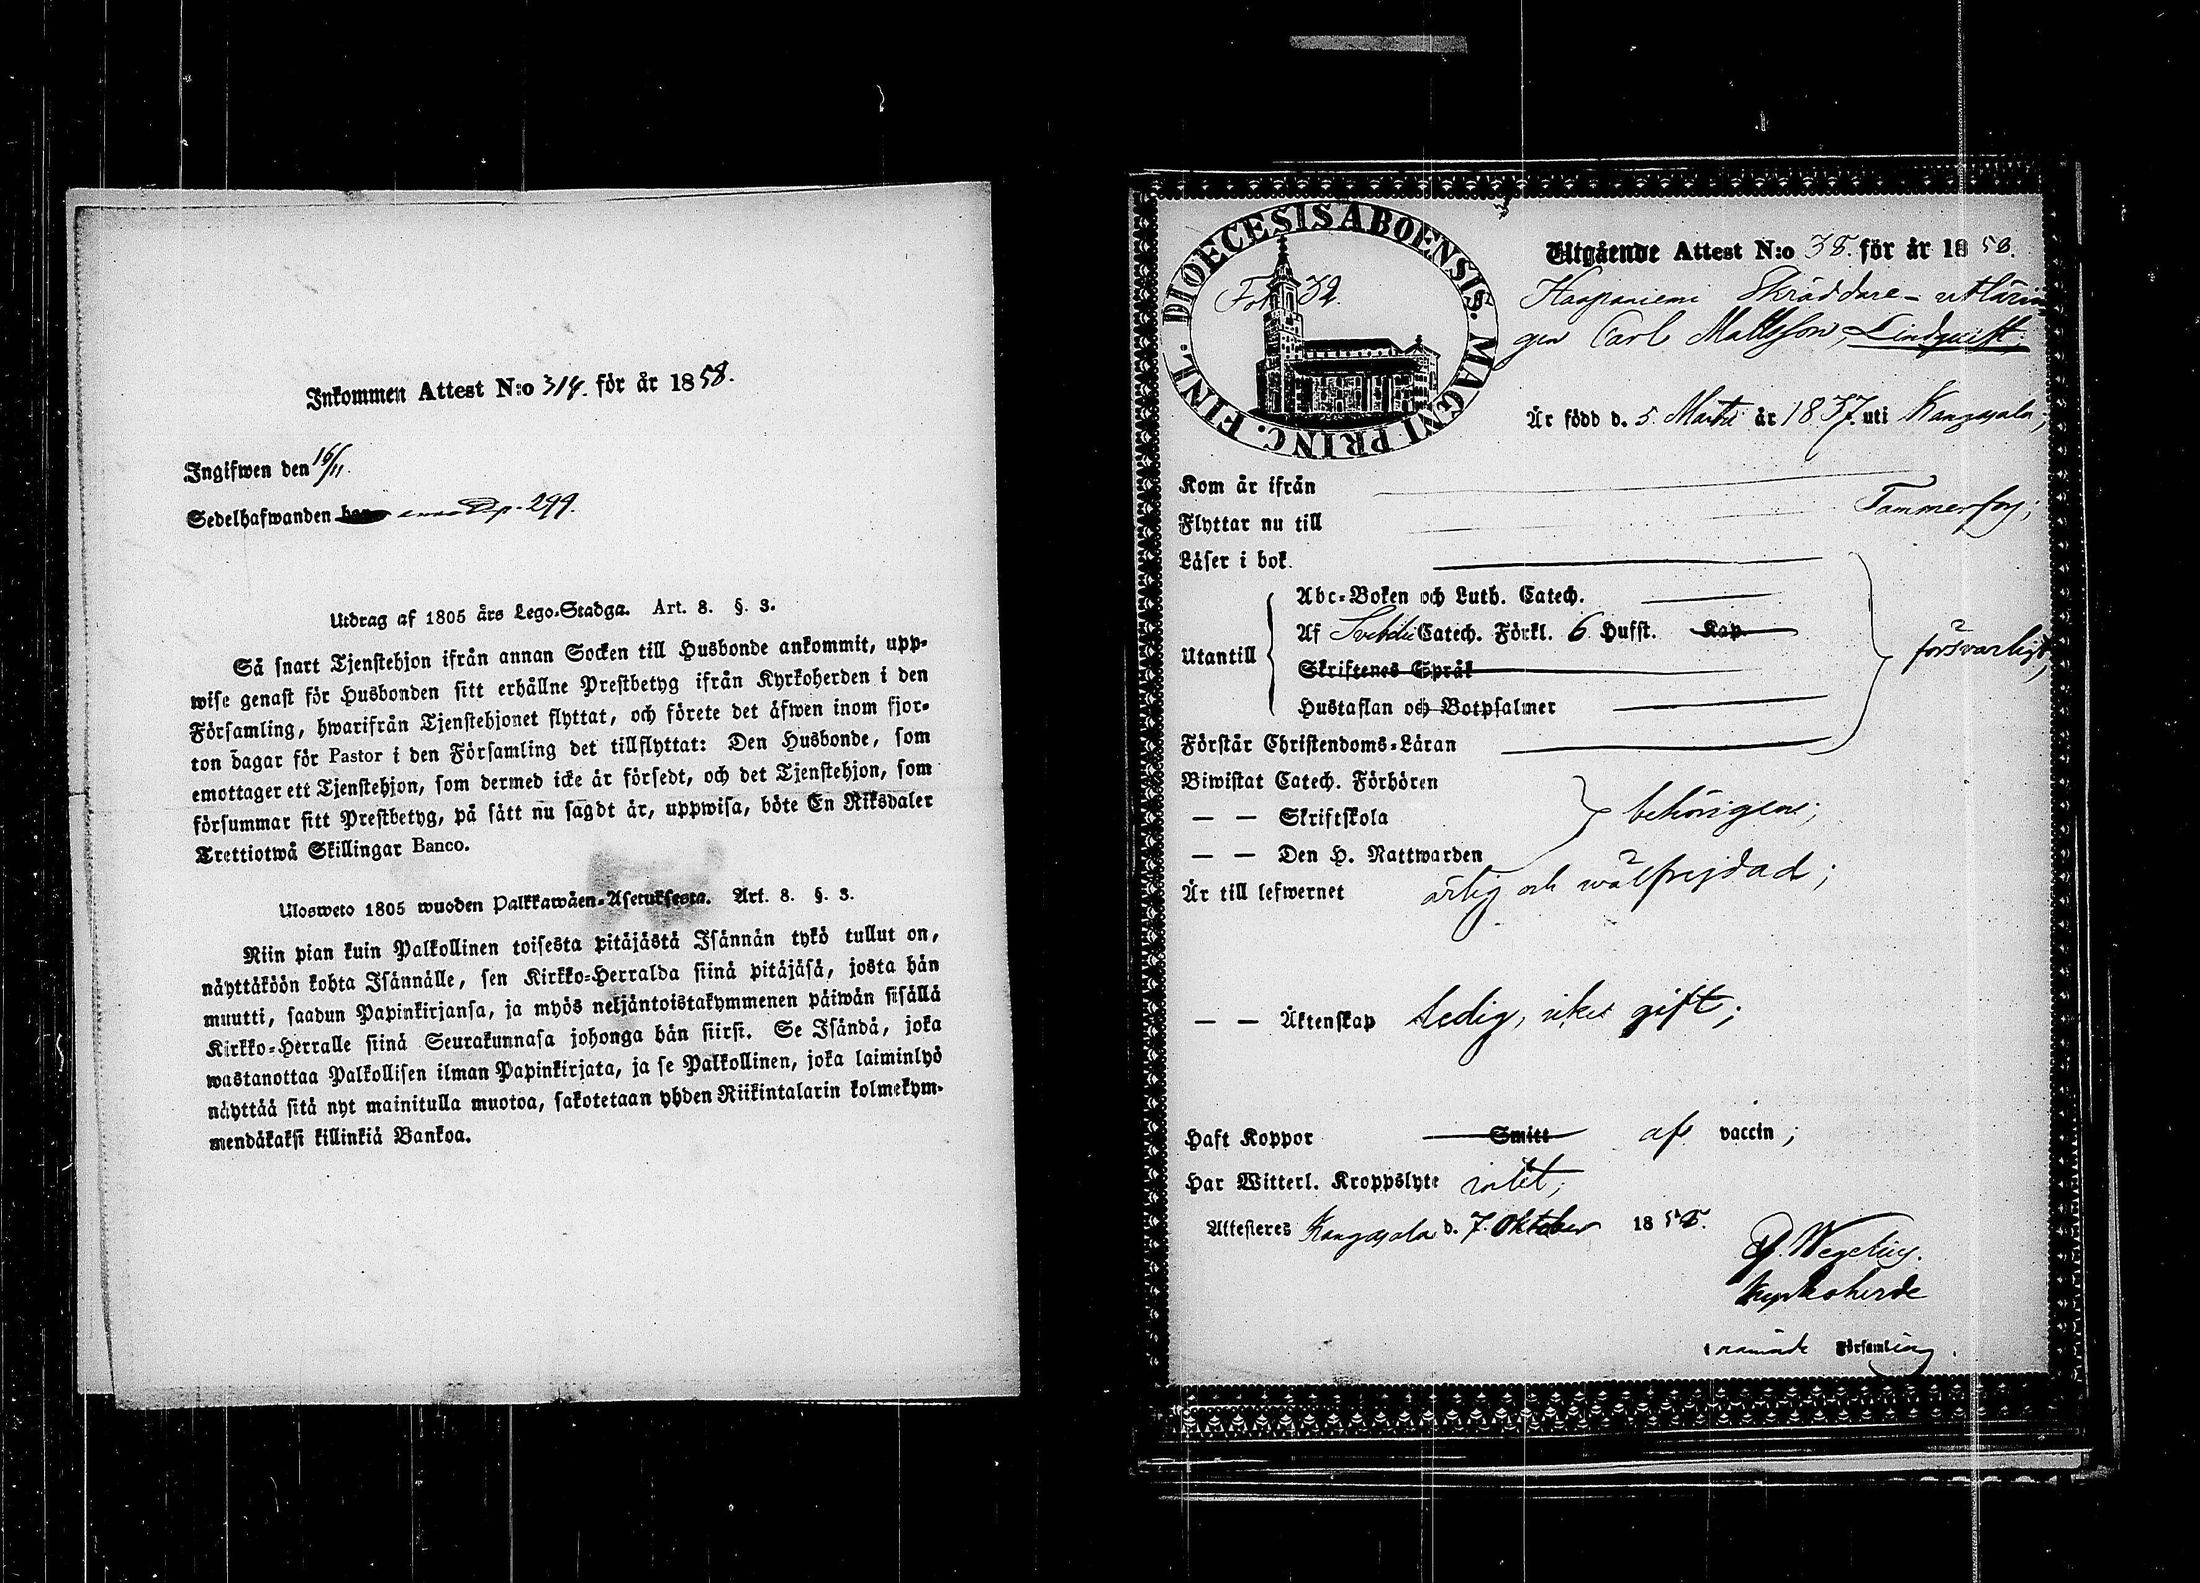 Inkommen Attest N:o 314. för år 1858.
Ingifwen den 16/11.
Sedelhafwanden p. 299.
Utdrag af 1805 års Lego-Stadga. Art. 8. §. 3.
Så snart Tjenstehjon ifrån annan Socken till Husbonde ankommit, upp-
wise genast för Husbonden sitt erhållne Prestbetyg ifrån Kyrkoherden i den
Församling, hwarifrån Tjenstehjonet flyttat, och förete det äfwen inom fjor-
ton dagar för Pastor i den Församling det tillflyttat: Den Husbonde, som
emottager ett Tjenstehjon, som dermed icke är försedt, och det Tjenstehjon, som
försummar sitt Prestbetyg, på sätt nu sagdt är, uppwisa, böte En Riksdaler
Trettiotwå Skillingar Banco.
Ulosweto 1805 wuoden Palkkawäen-Asetuksesta. Art. 8. §. 3.
Niin pian kuin Palkollinen toisesta pitäjästä Isännän tykö tullut on,
näyttäköön kohta Isännälle, sen Kirkko-Herralda siinä pitäjäsä, josta hän
muutti, saadun Papinkirjansa, ja myös neljäntoistakymmenen päiwän sisällä
Kirkko-Herralle siinä Seurakunnasa johonga hän siirsi. Se Isändä, joka
wastanottaa Palkollisen ilman Papinkirjata, ja se Palkollinen, joka laiminlyö
näyttää sitä nyt mainitulla muotoa, sakotetaan yhden Riikintalarin kolmekym-
mendäkaksi killinkiä Bankoa.
DIOECESIS ABOENSIS. MAGNI PRINC. FINL.
Fol. 32.
Utgående Attest N:o 38. för år 1858.
Haapaniemi Skräddare-utlärin
gen Carl Mattsson, Lindqvist;
Är född d. 5. Martii år 1837. uti Kangasala;
Kom år ifrån
Flyttar nu till Tammerfors;
Läser i bok.
Abc-Boken och Luth. Catech.
Utantill Af Svebelii Catech. Förkl. 6 Hufst. Kap. försvarligt;
Skriftenes Språk
Hustaflan och Botpsalmer
Förstår Christendoms-Läran
Biwistat Catech. Förhören
— — Skriftskola behörigen;
— — Den H. Nattwarden
Är till lefwernet ärlig och wälfrejdad;
— — Äktenskap ledig, icke gift;
Haft Koppor Smitt af vaccin;
Har Witterl. Kroppslyte intet;
Attesteres Kangasala d. 7. Oktober 1858.
Wegelius.
Kyrkoherde
i nämnde Församling.